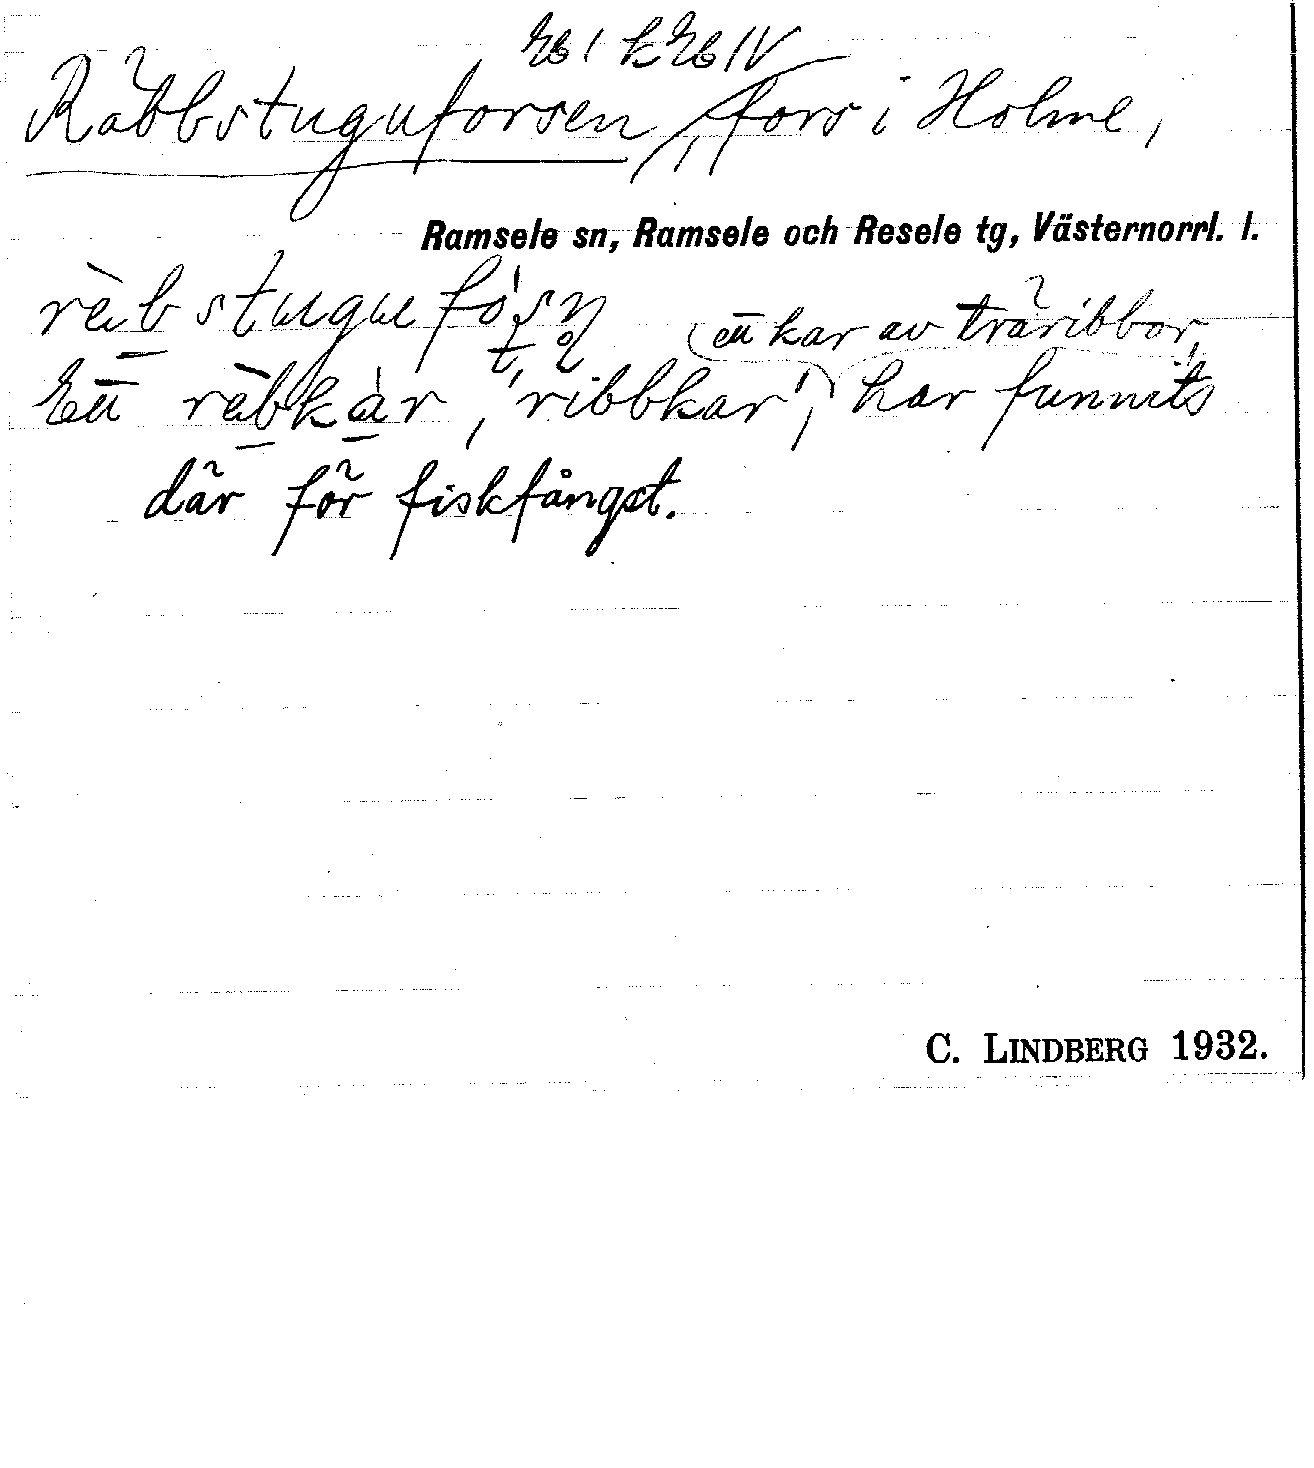 Eb 1 k Eb IV
Räbbstuguforsen, fors i Holme,
Ramsele sn, Ramsele och Resele tg, Västernorrl. l.
ett kar av träribbor,
Ett räbkar, 'ribbkar', har funnits
där för fiskfångst.
C. LINDBERG 1932.